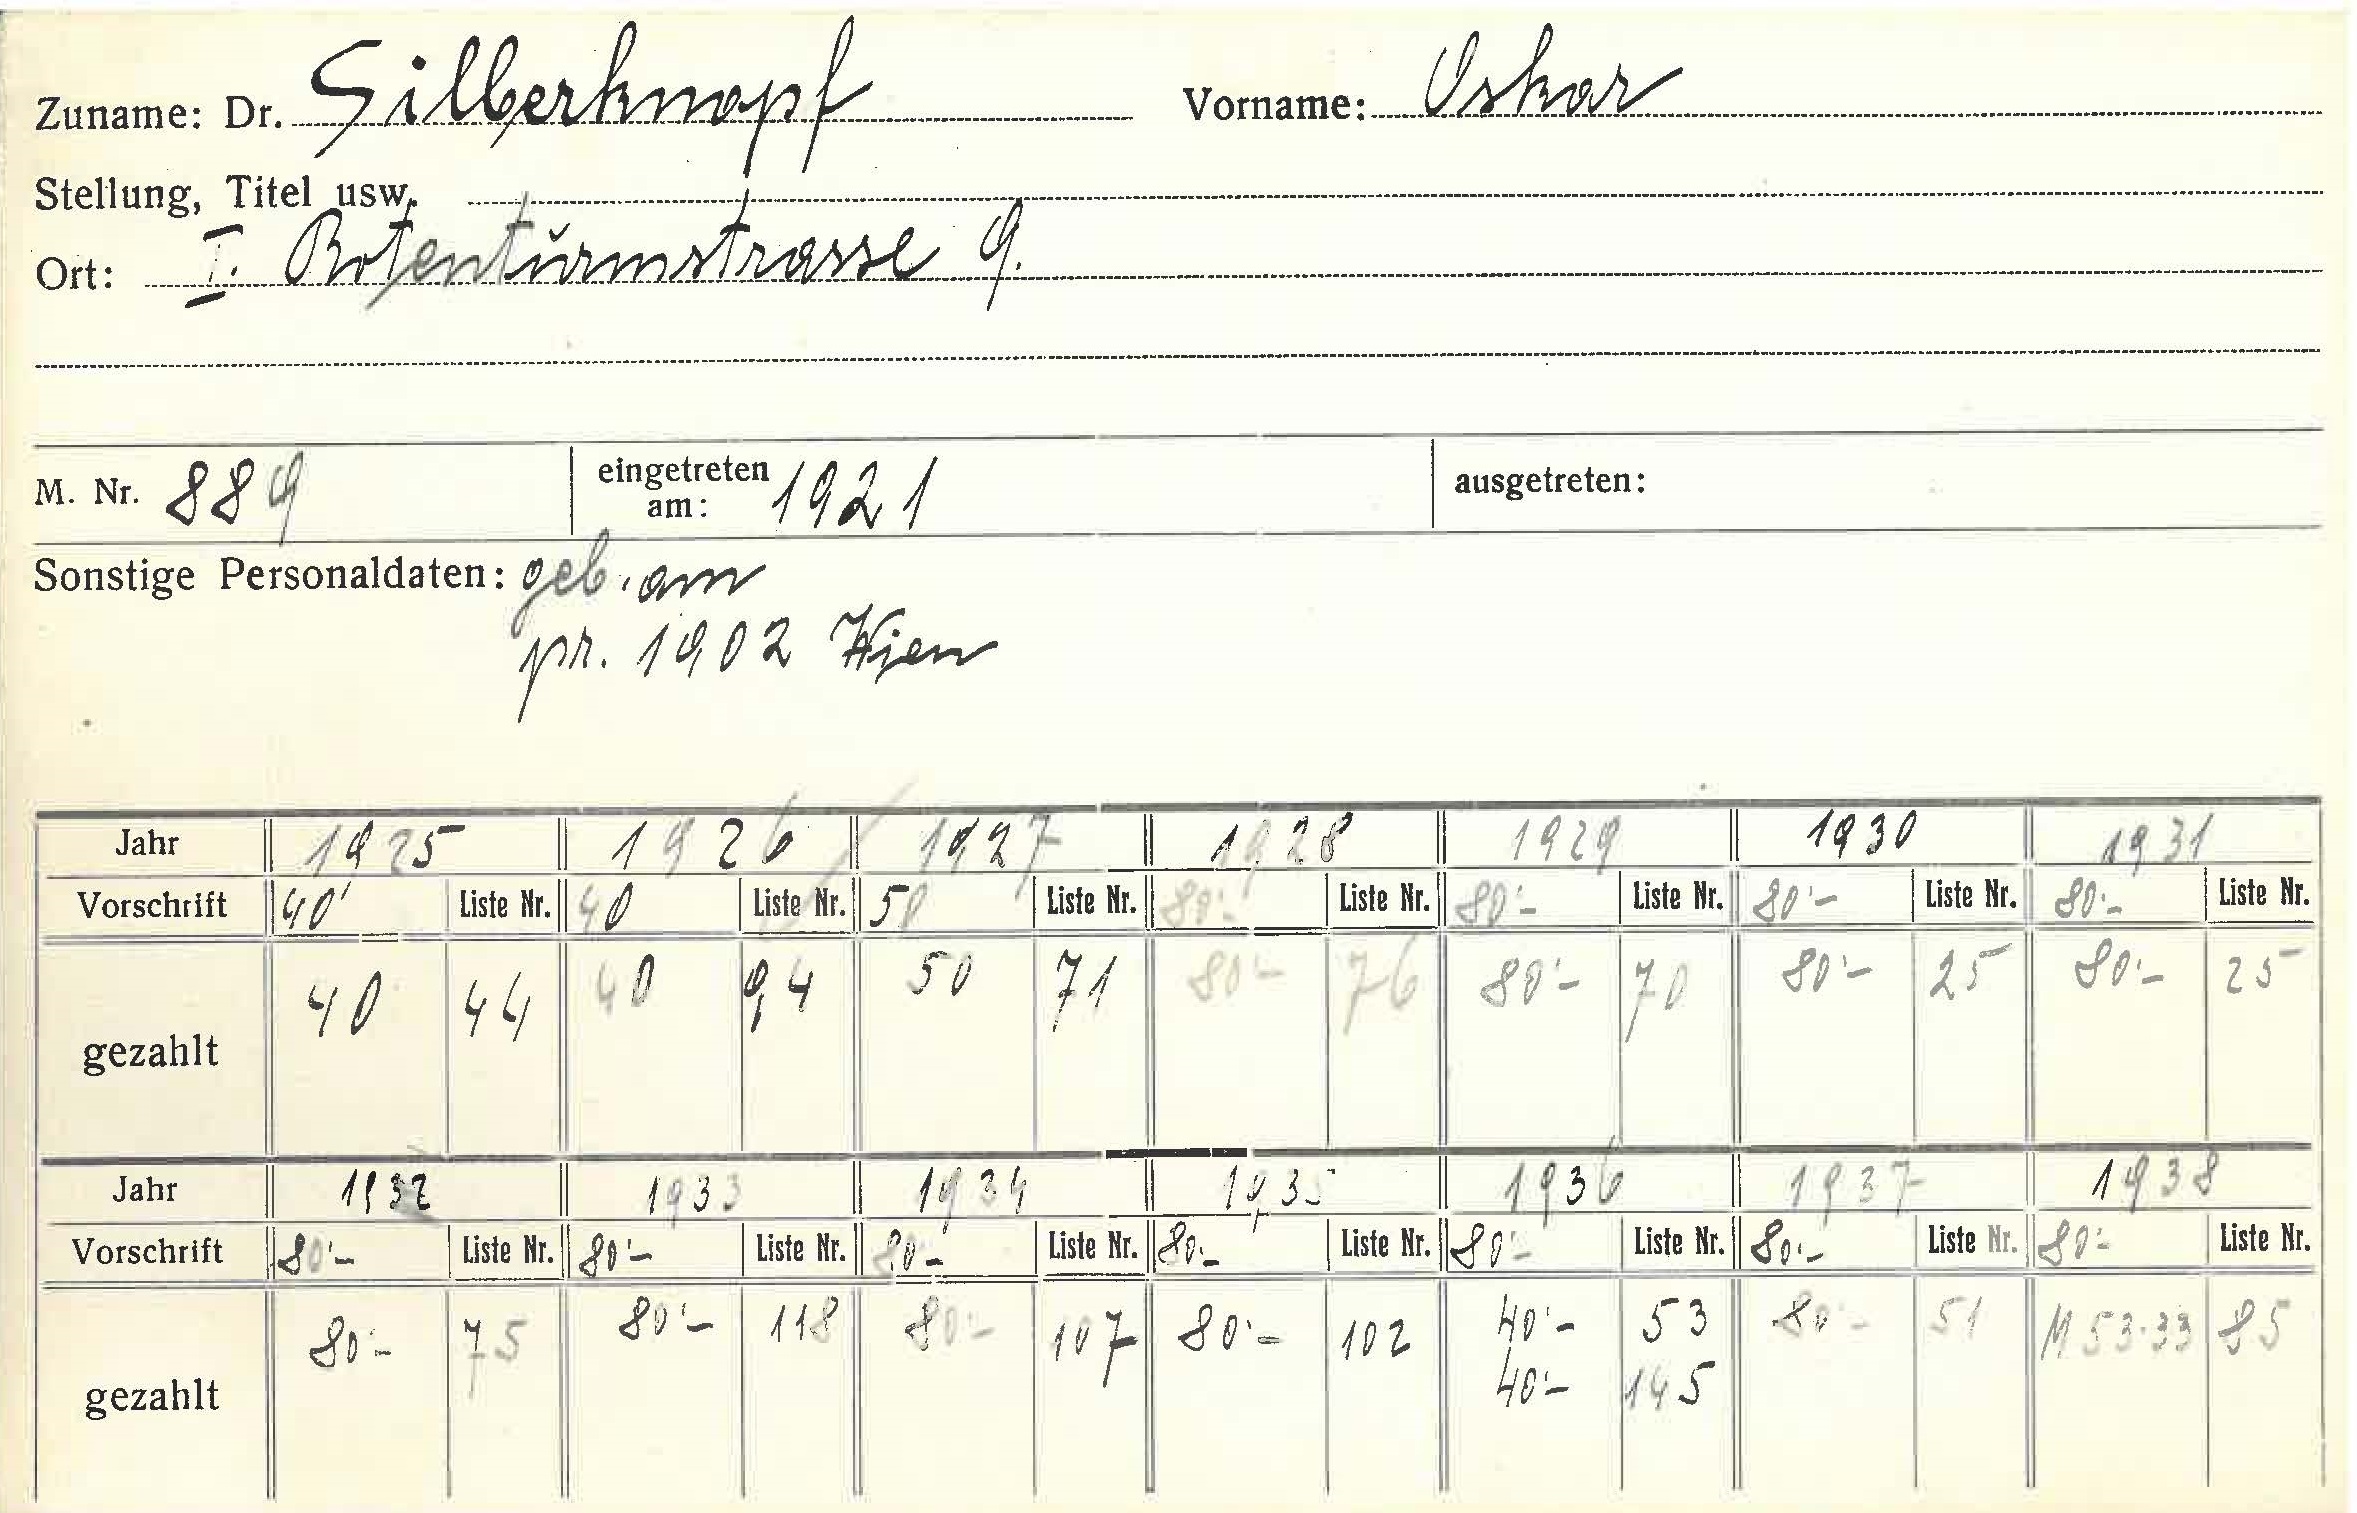 Zuname: Dr. Silberknopf Vorname: Oskar
Stellung, Titel usw.
Ort: I. Rotenturmstrasse 9.
M. Nr. 889 eingetreten am: 1921 ausgetreten:
Sonstige Personaldaten: geb. am
pr. 1902 Wien
Jahr 1925 1926 1927 1928 1929 1930 1931
Vorschrift 40 Liste Nr. 40 Liste Nr. 50 Liste Nr. 80·- Liste Nr. 80·- Liste Nr. 80·- Liste Nr. 80·- Liste Nr.
gezahlt 40 44 40 94 50 71 80·- 76 80·- 70 80·- 25 80·- 25
Jahr 1932 1933 1934 1935 1936 1937 1938
Vorschrift 80·- Liste Nr. 80·- Liste Nr. 80·- Liste Nr. 80·- Liste Nr. 80·- Liste Nr. 80·- Liste Nr. 80·- Liste Nr.
gezahlt 80·- 75 80·- 118 80·- 107 80·- 102 40·- 53 80·- 51 M 53·33 85
40·- 145